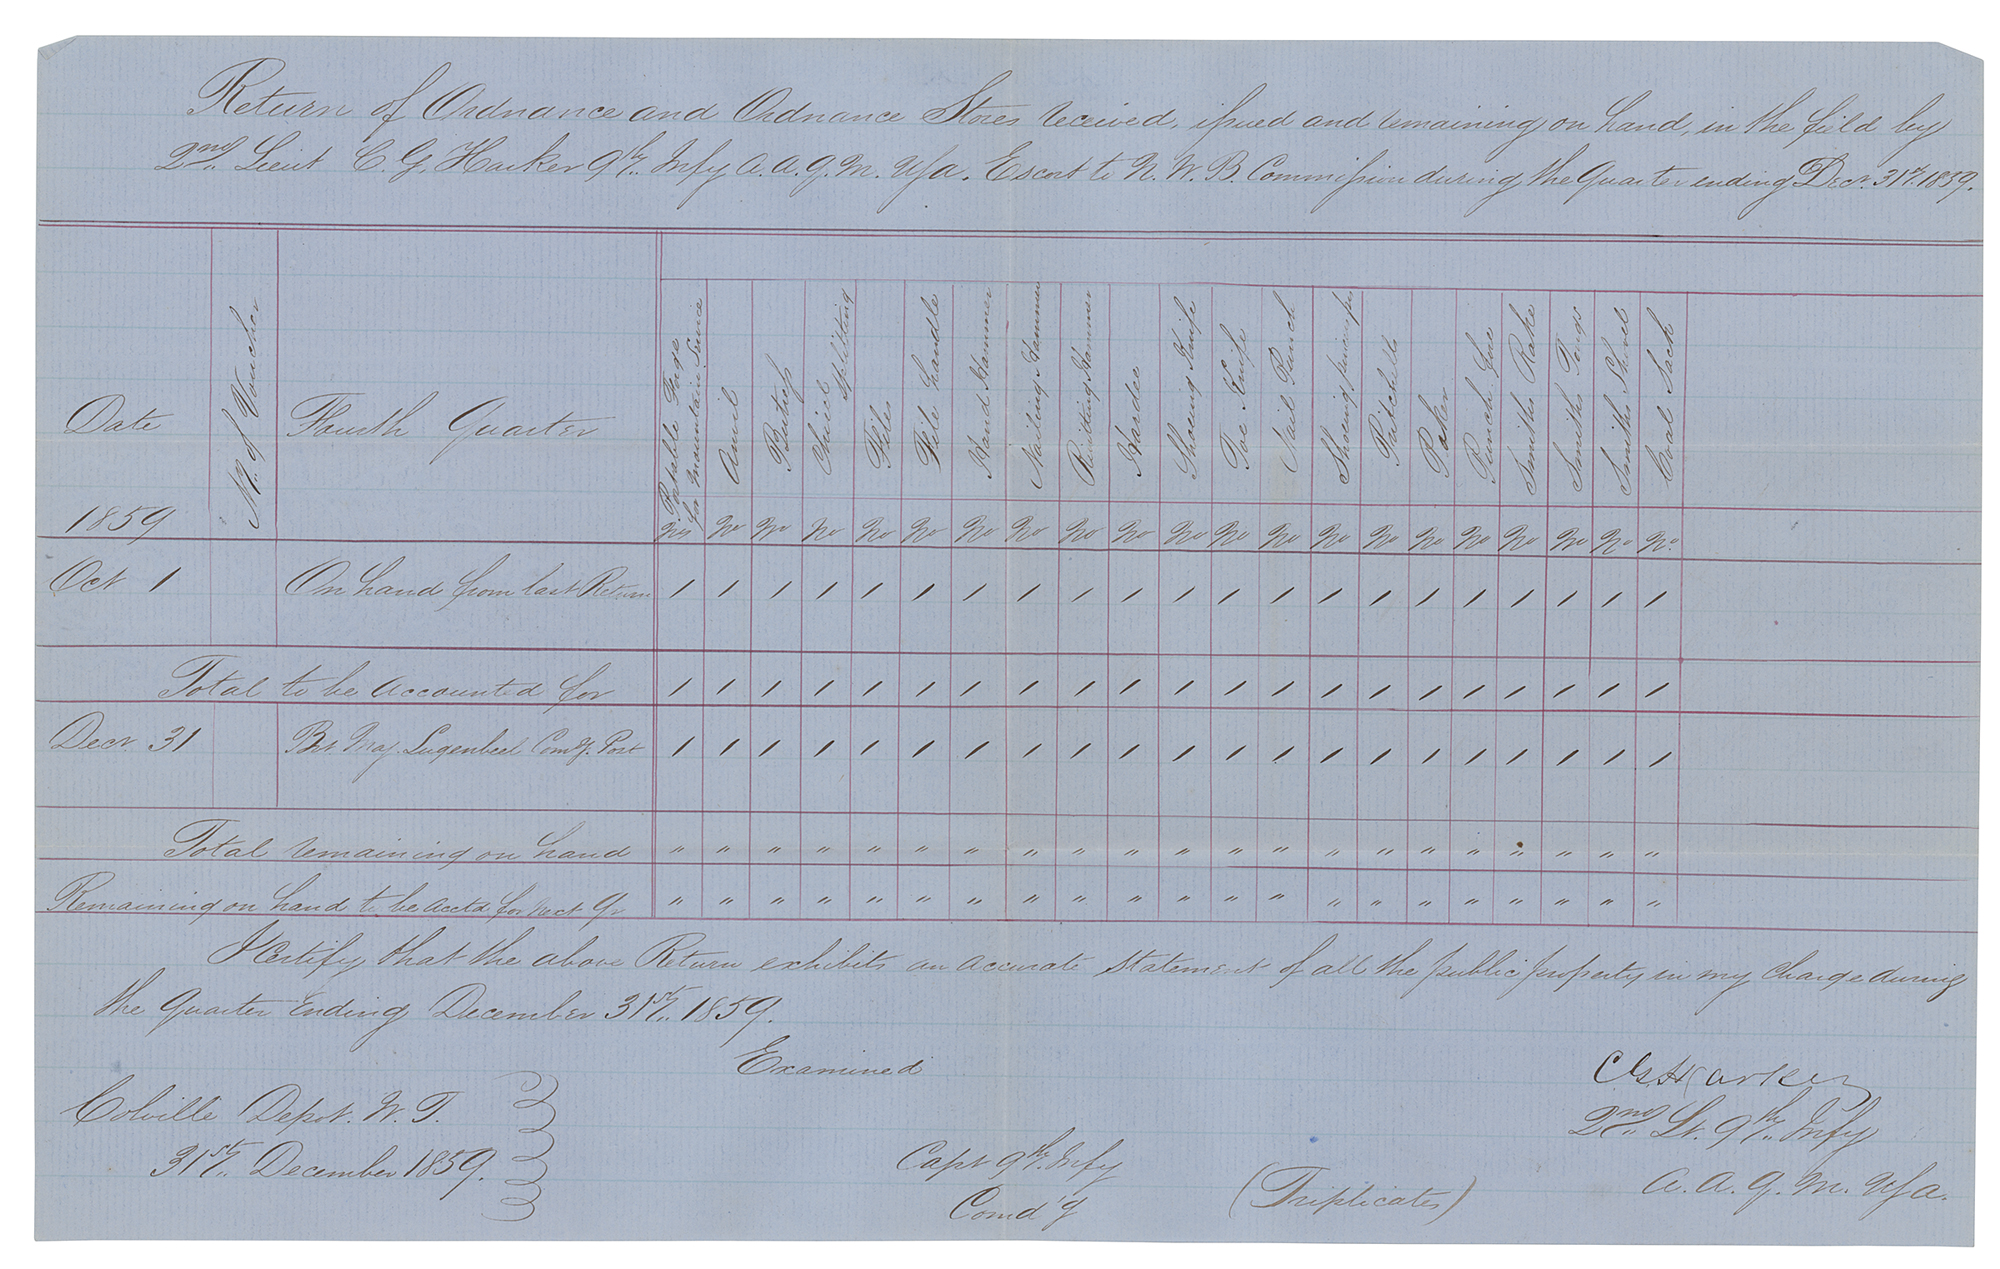 Return of Ordnance and Ordnance Stores received, issued and remaining on hand, in the field by
2nd. Lieut C. G. Harker 9th. Infy A. A. Q. M. USA. Escort to N. W. B. Commission during the Quarter ending Decr. 31st. 1859.
Date
1859
No. of Voucher
Fourth Quarter
Portable Forge for Mountain Service
Anvil
Butriss
Chisel Splitting
Files
File handle
Hand Hammer
Nailing Hammer
Riveting Hammer
Hardee
Shoeing Knife
Toe Knife
Nail Punch
Shoeing pincers
Pritchell
Poker
Punch
Smiths Rake
Smiths Tongs
Smiths Shovel
Coal Sack
No No No No No No No No No No No No No No No No No No No No No.
Oct 1 On hand from last Return 1 1 1 1 1 1 1 1 1 1 1 1 1 1 1 1 1 1 1 1 1
Total to be accounted for 1 1 1 1 1 1 1 1 1 1 1 1 1 1 1 1 1 1 1 1 1
Decr 31 Bvt Maj. Lugenbeel Comdg. Post 1 1 1 1 1 1 1 1 1 1 1 1 1 1 1 1 1 1 1 1 1
Total remaining on hand " " " " " " " " " " " " " " " " " " " " "
Remaining on hand to be acctd for next Qr " " " " " " " " " " " " " " " " " " " " "
I Certify that the above Return exhibits an accurate statement of all the public property in my charge during
the Quarter Ending December 31st. 1859.
Examined
Colville Depot. W. T.
31st. December 1859.
Capt 9th. Infy
Comd'g
(Triplicates)
CG Harker
2nd. Lt. 9th. Infy
A. A. Q. M. USA.